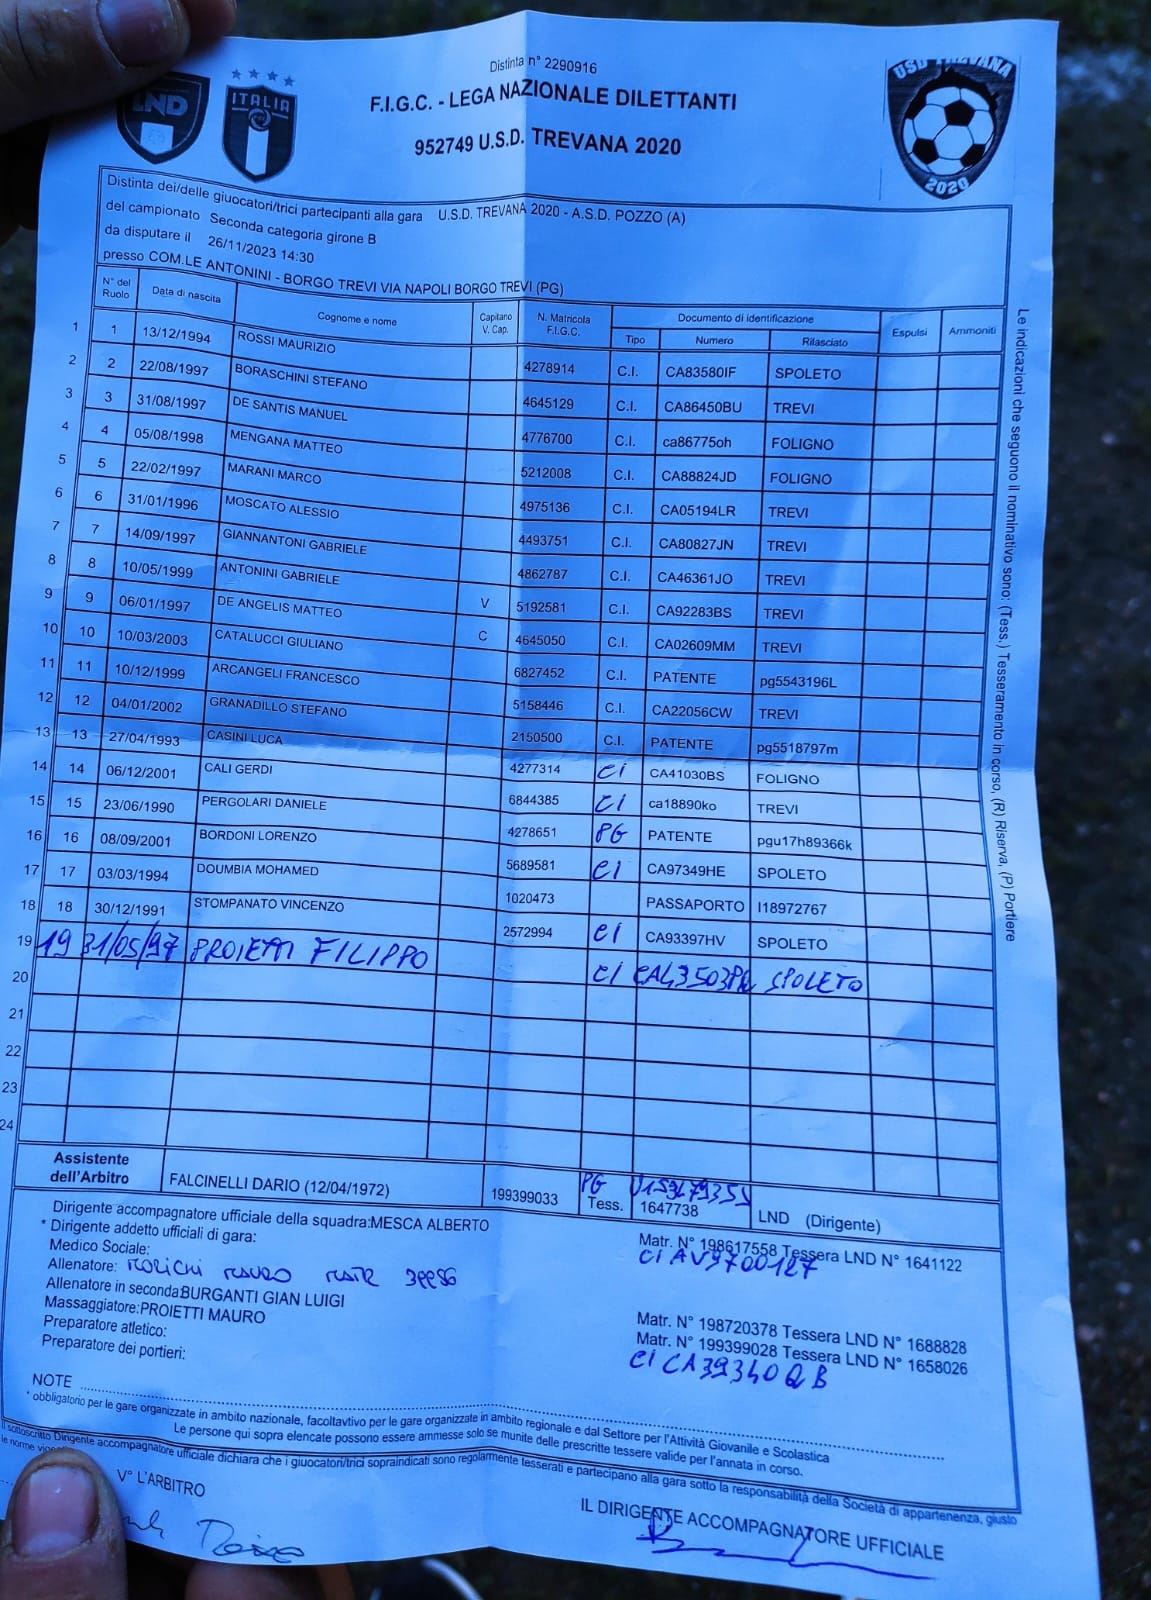 Distinta n° 2290916
F.I.G.C. - LEGA NAZIONALE DILETTANTI
952749 U.S.D. TREVANA 2020
LND
ITALIA
USD TREVANA
2020
Distinta dei/delle giuocatori/trici partecipanti alla gara U.S.D. TREVANA 2020 - A.S.D. POZZO (A)
del campionato Seconda categoria girone B
da disputare il 26/11/2023 14:30
presso COM.LE ANTONINI - BORGO TREVI VIA NAPOLI BORGO TREVI (PG)
N° del Ruolo Data di nascita Cognome e nome Capitano V. Cap. N. Matricola F.I.G.C. Documento di identificazione Espulsi Ammoniti
Tipo Numero Rilasciato
1 1 13/12/1994 ROSSI MAURIZIO 4278914 C.I. CA83580IF SPOLETO
2 2 22/08/1997 BORASCHINI STEFANO 4645129 C.I. CA86450BU TREVI
3 3 31/08/1997 DE SANTIS MANUEL 4776700 C.I. ca86775oh FOLIGNO
4 4 05/08/1998 MENGANA MATTEO 5212008 C.I. CA88824JD FOLIGNO
5 5 22/02/1997 MARANI MARCO 4975136 C.I. CA05194LR TREVI
6 6 31/01/1996 MOSCATO ALESSIO 4493751 C.I. CA80827JN TREVI
7 7 14/09/1997 GIANNANTONI GABRIELE 4862787 C.I. CA46361JO TREVI
8 8 10/05/1999 ANTONINI GABRIELE V 5192581 C.I. CA92283BS TREVI
9 9 06/01/1997 DE ANGELIS MATTEO C 4645050 C.I. CA02609MM TREVI
10 10 10/03/2003 CATALUCCI GIULIANO 6827452 C.I. PATENTE pg5543196L
11 11 10/12/1999 ARCANGELI FRANCESCO 5158446 C.I. CA22056CW TREVI
12 12 04/01/2002 GRANADILLO STEFANO 2150500 C.I. PATENTE pg5518797m
13 13 27/04/1993 CASINI LUCA 4277314 CI CA41030BS FOLIGNO
14 14 06/12/2001 CALI GERDI 6844385 CI ca18890ko TREVI
15 15 23/06/1990 PERGOLARI DANIELE 4278651 PG PATENTE pgu17h89366k
16 16 08/09/2001 BORDONI LORENZO 5689581 CI CA97349HE SPOLETO
17 17 03/03/1994 DOUMBIA MOHAMED 1020473 PASSAPORTO I18972767
18 18 30/12/1991 STOMPANATO VINCENZO 2572994 CI CA93397HV SPOLETO
19 19 31/05/97 PROIETTI FILIPPO CI SPOLETO
20
21
22
23
24
Le indicazioni che seguono il nominativo sono: (Tess.) Tesseramento in corso, (R) Riserva, (P) Portiere
Assistente dell'Arbitro FALCINELLI DARIO (12/04/1972) 199399033 PG Tess. 1647738 LND (Dirigente)
Dirigente accompagnatore ufficiale della squadra:MESCA ALBERTO Matr. N° 198617558 Tessera LND N° 1641122
* Dirigente addetto ufficiali di gara: CI AV9700127
Medico Sociale:
Allenatore: MAURO MATR
Allenatore in secondaBURGANTI GIAN LUIGI Matr. N° 198720378 Tessera LND N° 1688828
Massaggiatore:PROIETTI MAURO Matr. N° 199399028 Tessera LND N° 1658026
Preparatore atletico: CI CA39340QB
Preparatore dei portieri:
NOTE
* obbligatorio per le gare organizzate in ambito nazionale, facoltavtivo per le gare organizzate in ambito regionale e dal Settore per l'Attività Giovanile e Scolastica
Le persone qui sopra elencate possono essere ammesse solo se munite delle prescritte tessere valide per l'annata in corso.
Il sottoscritto Dirigente accompagnatore ufficiale dichiara che i giuocatori/trici sopraindicati sono regolarmente tesserati e partecipano alla gara sotto la responsabilità della Società di appartenenza, giusto
le norme
V° L'ARBITRO
IL DIRIGENTE ACCOMPAGNATORE UFFICIALE